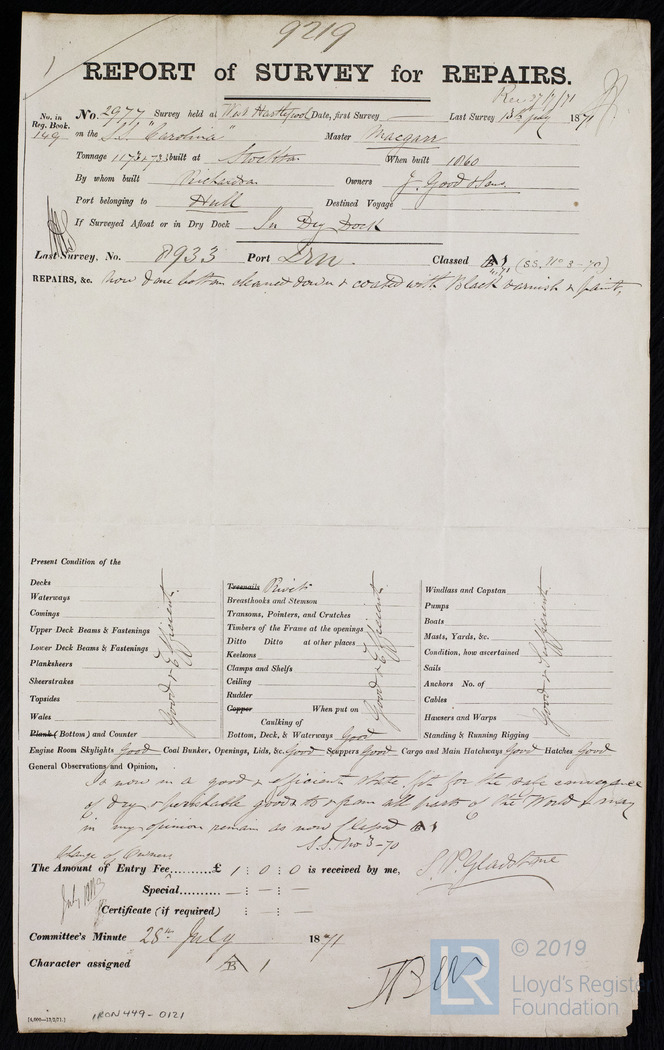 9219
REPORT of SURVEY for REPAIRS.
Rec 27/7/71
No. in Reg. Book. No. 2977 Survey held at West Hartlepool Date, first Survey — Last Survey 13th July 1871
149 on the S.S. "Carolina" Master Macgarr
Tonnage built at Stockton When built 1860
By whom built Richardson Owners J. Good & Sons
Port belonging to Hull Destined Voyage
If Surveyed Afloat or in Dry Dock In Dry Dock
Last Survey, No. 8933 Port Irn. Classed A1 (SS. No 3-70)
REPAIRS, &c. now done bottom cleaned down & coated with Black varnish & paint,
Present Condition of the
Decks
Waterways
Comings
Upper Deck Beams & Fastenings
Lower Deck Beams & Fastenings
Planksheers
Sheerstrakes
Topsides
Wales
Plank (Bottom) and Counter
Good & Efficient
Treenails Rivets
Breasthooks and Stemson
Transoms, Pointers, and Crutches
Timbers of the Frame at the openings
Ditto Ditto at other places
Keelsons
Clamps and Shelfs
Ceiling
Rudder
Copper When put on
Caulking of
Bottom, Deck, & Waterways Good
Good & Efficient
Windlass and Capstan
Pumps
Boats
Masts, Yards, &c.
Condition, how ascertained
Sails
Anchors No. of
Cables
Hawsers and Warps
Standing & Running Rigging
Good & Sufficient
Engine Room Skylights Good Coal Bunker, Openings, Lids, &c. Good Scuppers Good Cargo and Main Hatchways Good Hatches Good
General Observations and Opinion,
Is now in a good & efficient state fit for the safe conveyance
of dry & perishable goods to & from all parts of the World & may
in my opinion remain as now Classed A1
S.S. No 3-70
Change of Owners
The Amount of Entry Fee..........£ 1 : 0 : 0 is received by me, Gladstone
Special......... — : — : —
Certificate (if required) : — : —
Committee's Minute 28th July 1871
Character assigned A 1
[4,000—13/2/71.]
IRON449-0121
LR
© 2019
Lloyd's Register
Foundation